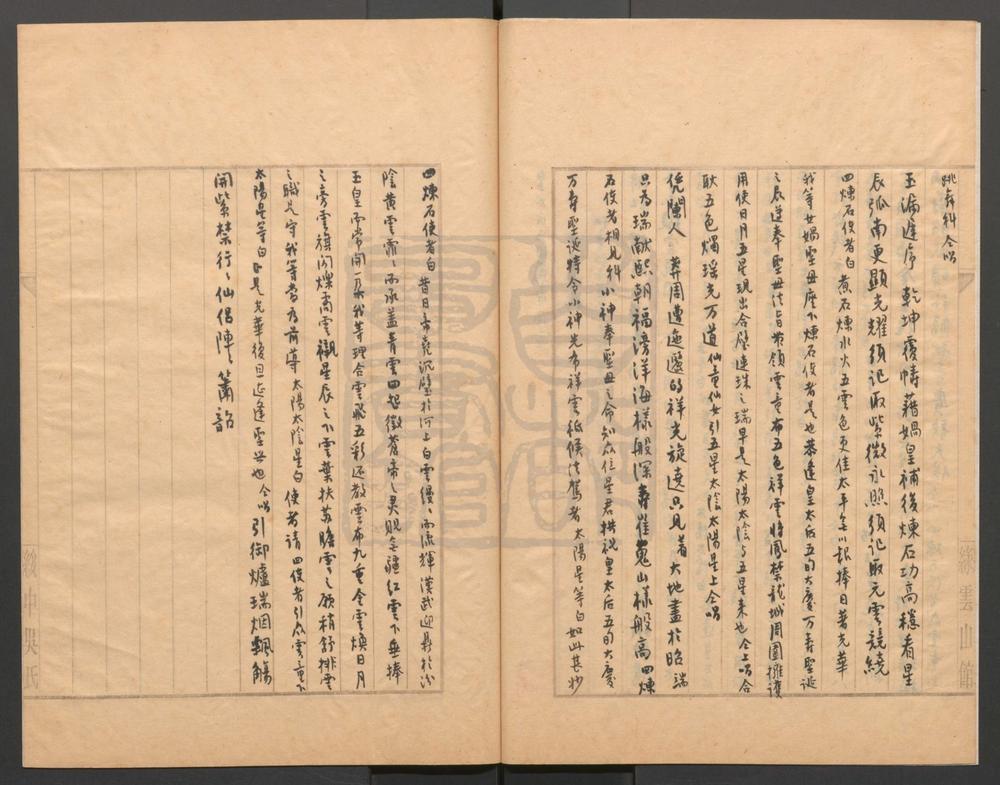 跳舞科 合唱
玉漏遲序 乾坤覆幬藉媧皇補後煉石功高穩看星
辰弧南更顯光耀須記取紫微永照須記取元雲競繞
四煉石使者白 煮石煉水火五雲色更佳太平無以報捧日著光華
我等女媧聖母座下煉石使者是也恭逢皇太后五旬大慶万壽聖誕
之辰遵奉聖母法旨帶領雲童布五色祥雲將鳳禁龍城周圍擁護
用使日月五星現出合璧連珠之瑞早是太陽太陰与五星來也 仝上唱合
耿五色燭瑤光万道 仙童仙女引五星太陰太陽星上仝唱
凭闌人 葬周遭迤邐的祥光旋遶只見着大地盡於昭諯
只為瑞獻熙朝福澇洋海樣般深壽崔嵬山樣般高 四煉
石使者相見科小神奉聖母之命知众位星君拱祝皇太后五旬大慶
万壽聖誕特令小神先布祥雲祗候法駕者 太陽星等白 如此甚妙
四煉石使者白 昔日帝堯沉璧於河上白雲縵縵而流輝漢武迎鼎於汾
陰黃雲霏霏而承盖青雲四起徵蒼帝之灵貺無疆紅雲下垂捧
玉皇而常開一朵我等理合雲飛五彩还教雲布九重令雲煥日月
之旁雲旗閃爍喬雲襯星辰之下雲葉扶蘇瞻雲之願稍舒排雲
之職是守我等當為前導 太陽太陰星白 使者請 四使者引众雲童下
太陽星等白 日是光華復旦近逢聖世也 仝唱 引御爐瑞烟飄觴
開紫禁行行仙侣陣陣簫韶